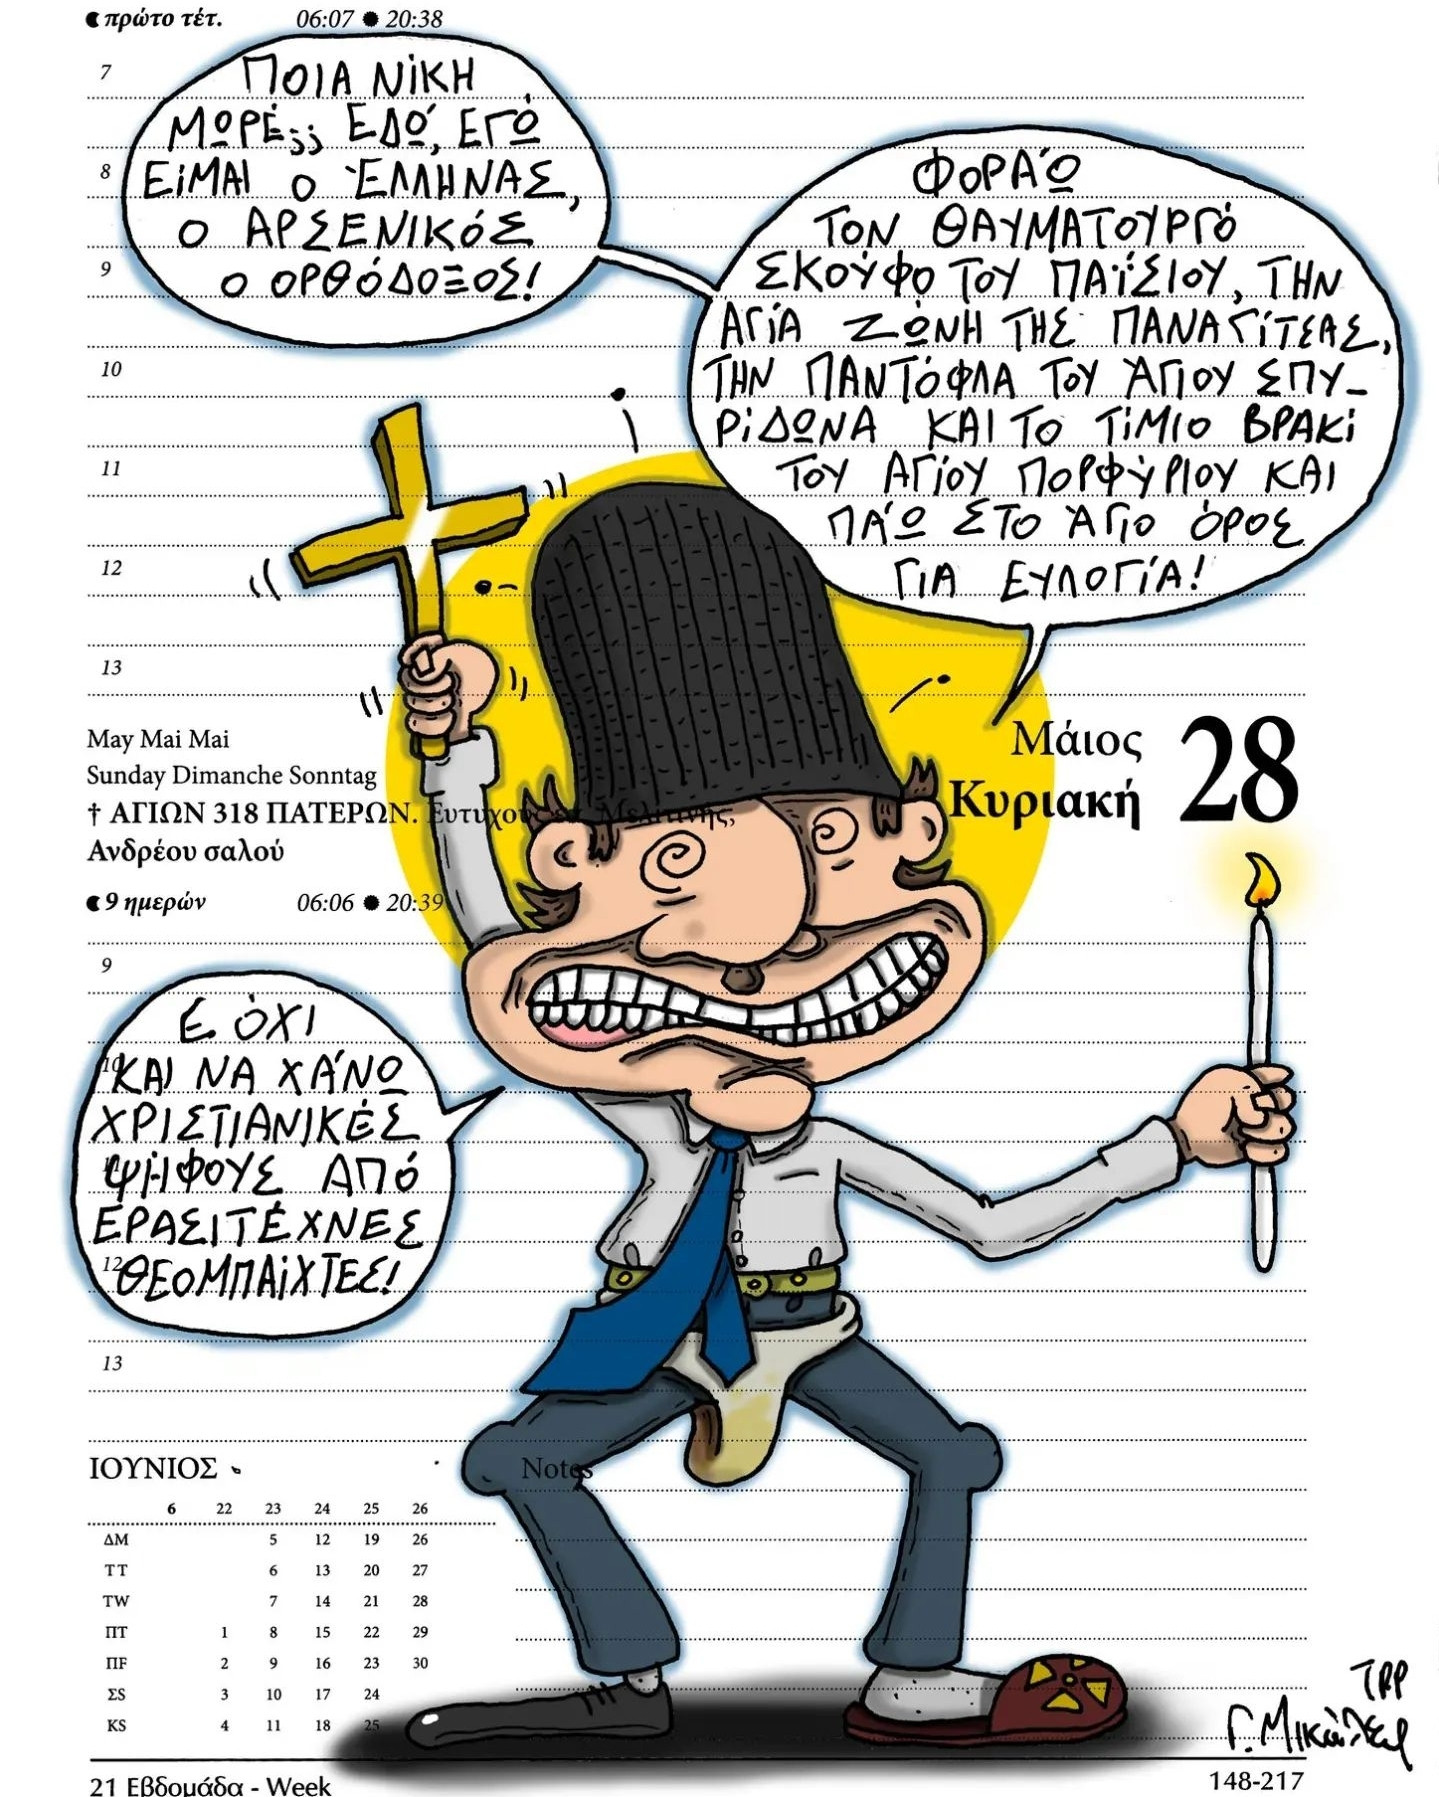 πρώτο τέτ. 06:07 20:38
7
ΠΟΙΑ ΝίΚΗ
ΜΩΡΈ;; ΕΔΏ, ΕΓΏ
8
ΕίΜΑΙ Ο ΈΛΛΗΝΑΣ,
Ο ΑΡΣΕΝΙΚόΣ
9
Ο ΟΡΘόΔΟΞΟΣ!
ΦΟΡΆΩ
ΤΟΝ ΘΑΥΜΑΤΟΥΡΓό
ΣΚΟΎΦΟ ΤΟΥ ΠΑΪΣΙΟΥ, ΤΗΝ
ΑΓίΑ ΖΏΝΗ ΤΗΣ ΠΑΝΑΓίΤΣΑΣ,
ΤΗΝ ΠΑΝΤόΦΛΑ ΤΟΥ ΆΓΙΟΥ ΣΠΥ-
ΡίΔΩΝΑ ΚΑΙ ΤΟ ΤίΜΙΟ ΒΡΑΚί
ΤΟΥ ΑΓίΟΥ ΠΟΡΦΎΡΙΟΥ ΚΑΙ
ΠΆΩ ΣΤΟ ΆΓΙΟ ΌΡΟΣ
ΓΙΑ ΕΥΛΟΓίΑ!
10
11
12
13
May Mai Mai
Sunday Dimanche Sonntag
† ΑΓΙΩΝ 318 ΠΑΤΕΡΩΝ. Ευτυχούς επ. Μελιτινής,
Ανδρέου σαλού
Μάιος
Κυριακή 28
9 ημερών 06:06 20:39
9
Ε ΌΧΙ
10
ΚΑΙ ΝΑ ΧΆΝΩ
ΧΡΙΣΤΙΑΝΙΚΈΣ
11
ΨΉΦΟΥΣ ΑΠό
ΕΡΑΣΙΤΈΧΝΕΣ
12
ΘΕΟΜΠΑίΧΤΕΣ!
13
ΙΟΥΝΙΟΣ
6 22 23 24 25 26
ΔΜ 5 12 19 26
ΤΤ 6 13 20 27
ΤW 7 14 21 28
ΠΤ 1 8 15 22 29
ΠF 2 9 16 23 30
ΣS 3 10 17 24
KS 4 11 18 25
Notes
ΤΡΡ
Γ. Μικάλεφ
21 Εβδομάδα - Week
148-217